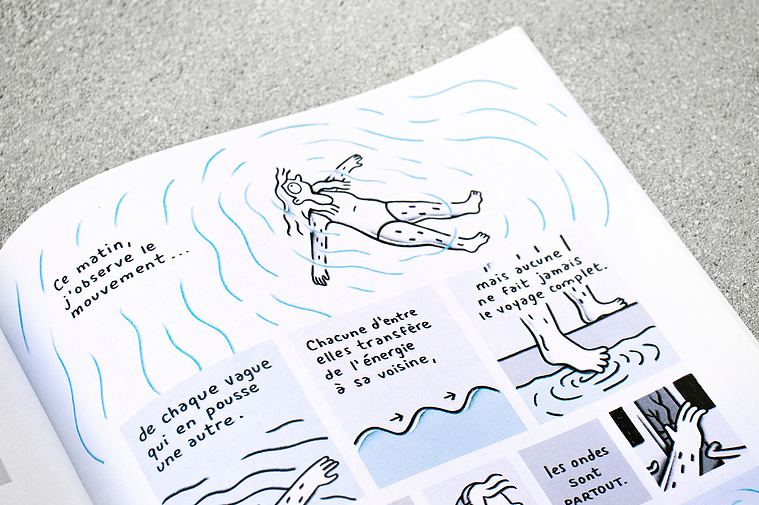 Ce matin,
j'observe le
mouvement...
de chaque vague
qui en pousse
une autre.
Chacune d'entre
elles transfère
de l'énergie
à sa voisine,
mais aucune
ne fait jamais
le voyage complet.
les ondes
sont
PARTOUT.